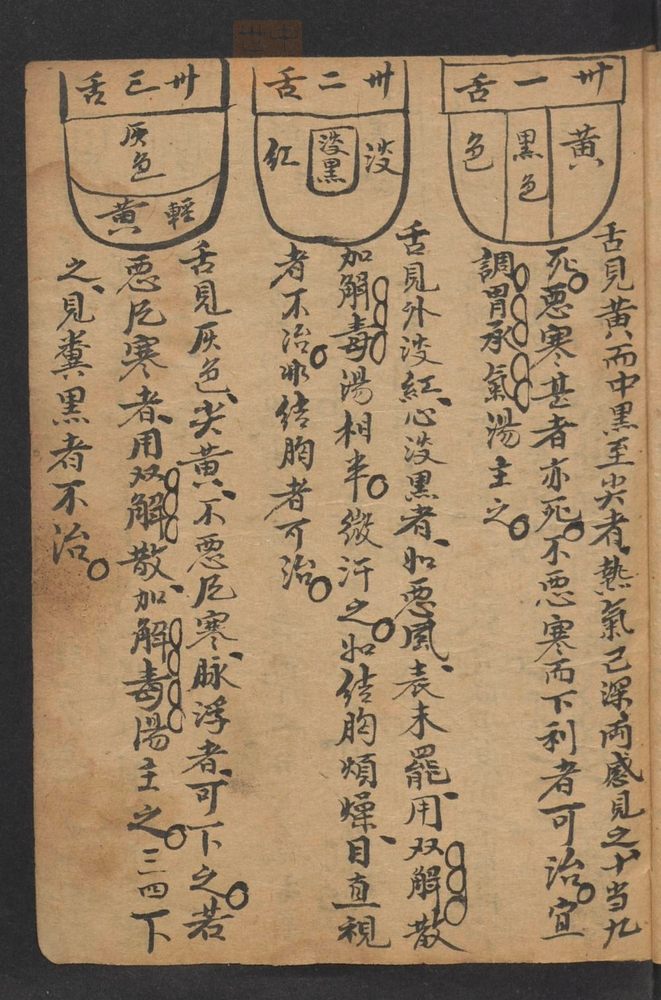 卅一舌
黃
黑色
色
舌見黄而中黒至尖者、熱氣已深、両感見之、十当九
死。悪寒甚者亦死。不悪寒而下利者可治。宜
調胃承氣湯主之。
卅二舌
淡
淡黒
紅
舌見外淡紅、心淡黒者、如悪風、表未罷、用双解散
加解毒湯相半。微汗之。如结胸煩燥、目直視
者不治。非结胸者可治。
卅三舌
灰色
輕黄
舌見灰色、尖黄、不悪风寒、脉浮者、可下之。若
悪风寒者、用双解散、加解毒湯主之。三四下
之、見糞黒者不治。